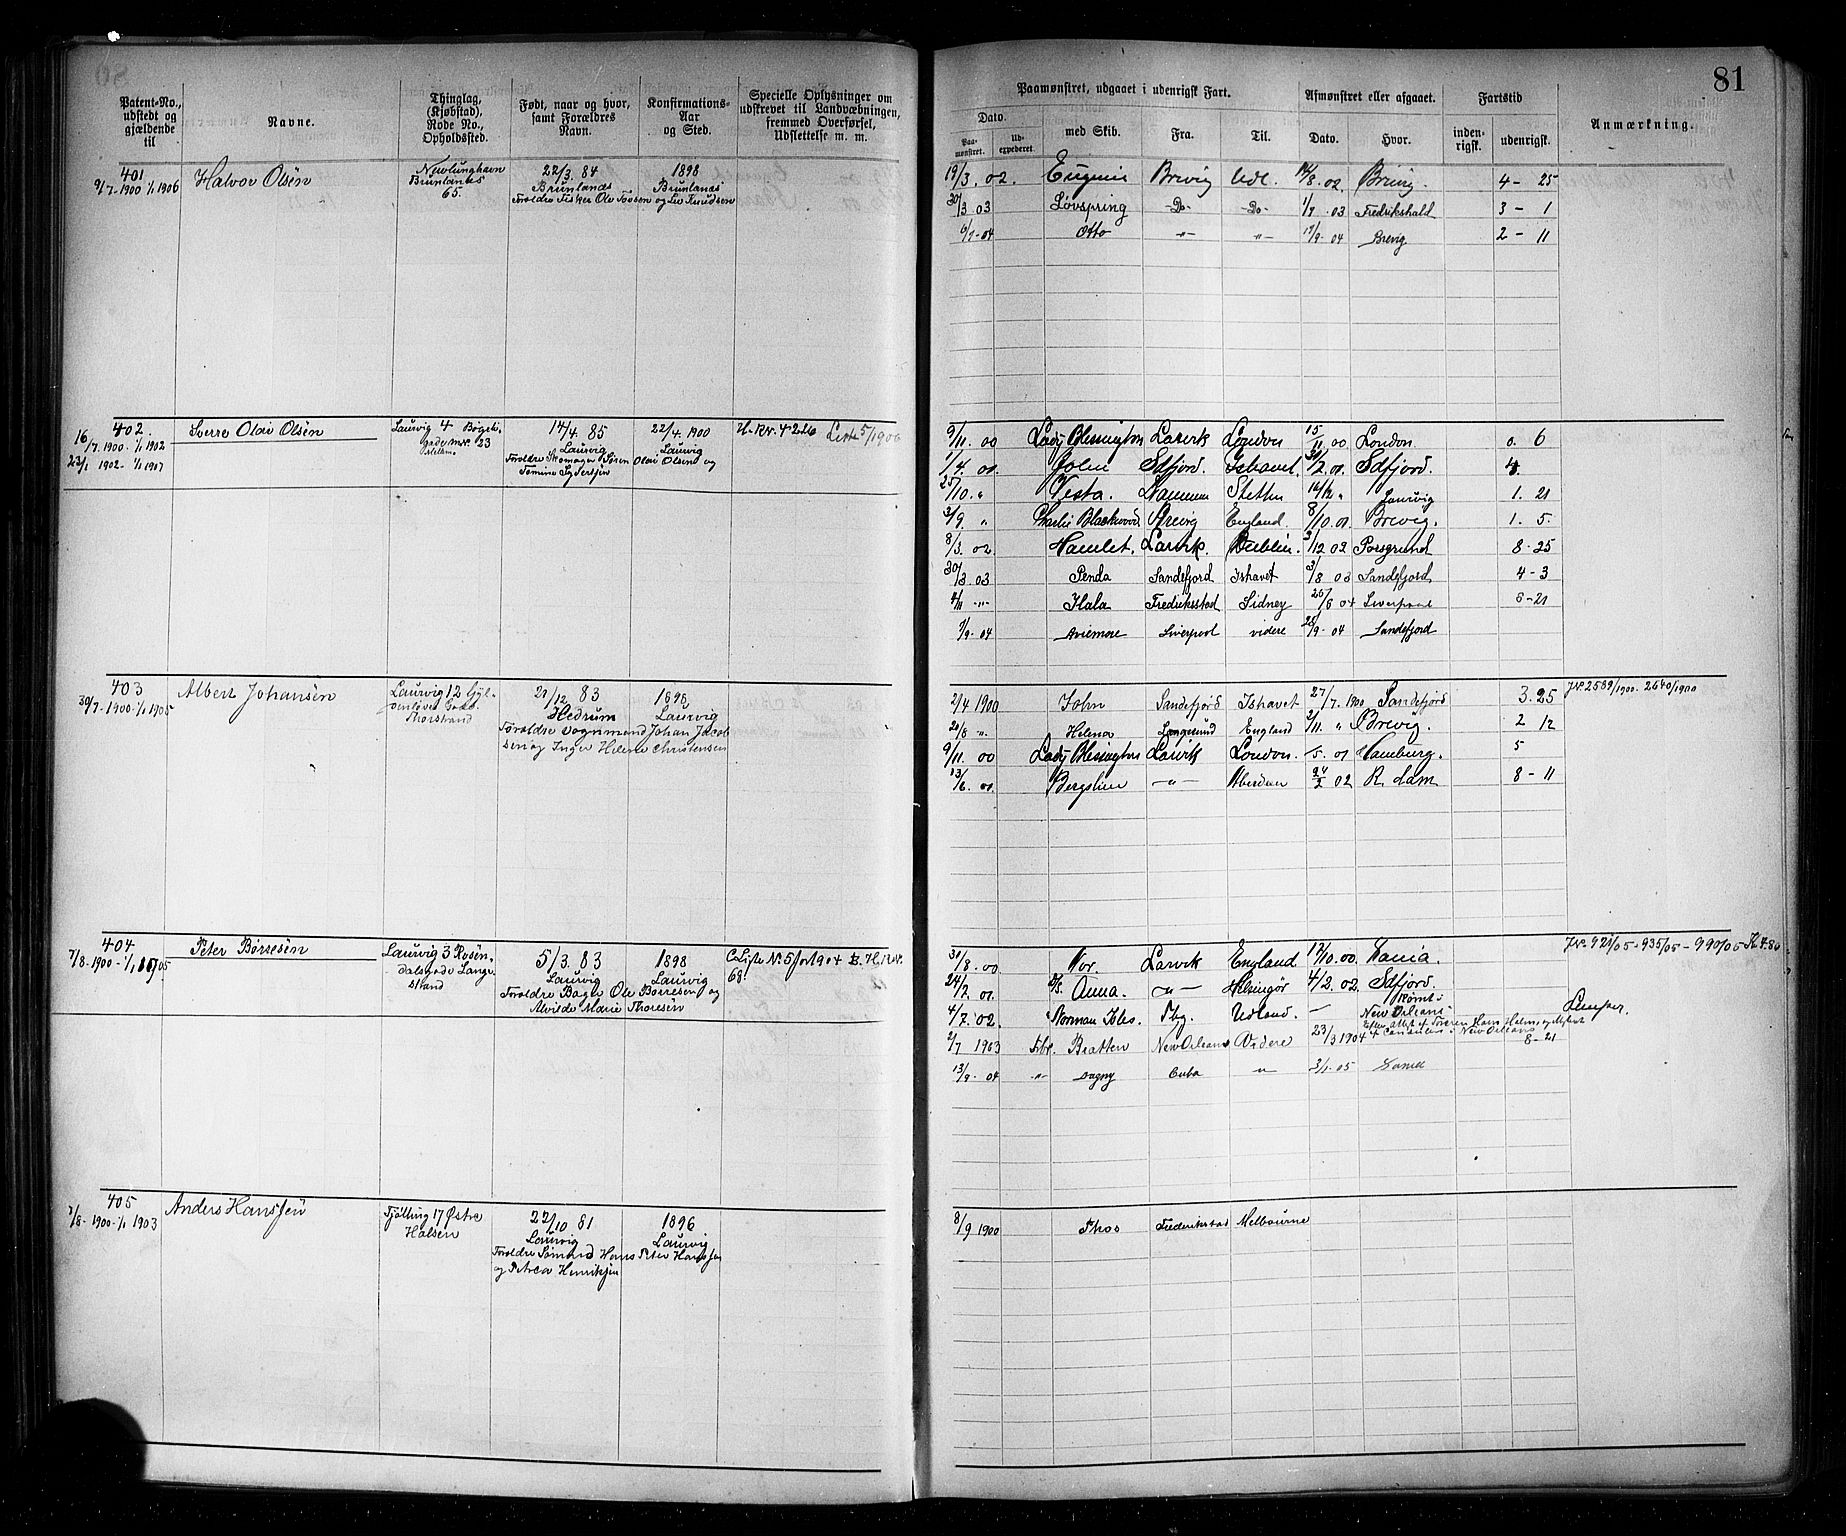 81
Patent-No., udstedt og gjældende til
Navne.
Thinglag, (Kjøbstad), Rode No., Opholdssted.
Født, naar og hvor, samt Forældres Navn.
Konfirmations-Aar og Sted.
Specielle Oplysninger om udskrevet til Landværbningen, fremmed Overførsel, Udslettelse m. m.
Paamønstret, udgaaet i udenrigsk Fart.
Afmønstret eller afgaaet.
Fartstid
Anmærkning.
Dato.
Paa-mønstret.
Ud-expederet
med Skib.
Fra.
Til.
Dato.
Hvor.
inden-rigsk.
udenrigsk.
401
9/7-1900 1/1 1906
Halvor Olsen
Nevlunghavn
Brunlanes
65.
22/3. 84
Brunlanes
Foreldre Fisker Ole
1898
Brunlanes
Knudsen
19/3. 02. Eugenie Brevig Udl. 14/8. 02. Brevig. 4 - 25
30/3 03 Løvspring -Do- -Do- 1/9 .03 Fredrikshald 3 - 1
6/7-04 Otto -"- -"- 17/9- 04 Brevig 2 - 11
402.
16/7. 1900. 1/1 1902
23/1 1902- 1/1 1907
Sverre Olai Olsen
Laurvig 4 Bøgeh.
gade mr. 23
14/4. 85
Laurvig
Foreldre Skomager Søren Olai Olsen og
22/4. 1900
Laurvig
H-Rv. 4246 Liste 5/1906
9/11. 00 Lady Blessington Larvik London 15/11 00 London. 0. 6
1/4. 01. John Sdfjord. Ishavet 31/2. 01. Sdfjord. 4
25/10. " Vesta. Stettin 14/12 " Laurvig 1. 21
3/9. " Charlie Blackwood Brevig England. 8/10. 01. Brevig. 1. 5.
8/3. 02 Hamlet. Larvik. Dublin. 3/12 02 Porsgrund 8-25
30/3. 03 Penda Sandefjord Ishavet 3/8 03 Sandefjord 4-3
4/11 -"- Hala Fredriksstad Sidney 25/6 04 Liverpool 6-21
7/9- 04 Aviemore Liverpool videre 25/9- 04 Sandefjord
403
30/7-1900-1/1 1905
Albert Johansen
Laurvig 12 Gyl-
denløves Gade
Thorstrand
21/12 83
Hedrum
Foreldre Vognmand Johan Jacob
sen og Inger Helene Christensen
1898
Laurvig
2/4 1900 John Sandefjord Ishavet 27/7. 1900 Sandefjord 3.25
J.No 2589/1900- 2640/1900
20/8 ". Helena Langesund England 3/11. " Brevig. 2 12
9/11. 00 Lady Blessington Larvik London. /5. 01 Hamburg. 5
13/6. 01. Bergslien -"- Aberdeen 24/2 02 R. dam 8 - 11
404
7/8-1900-1/1 1905
Peter Børresen
Laurvig 3 Rosen-
dalsgade Lange
strand
5/3. 83
Laurvig
Foreldre Bager Ole Børresen og
Alvilde Marie Thoresen
1898
Laurvig
C Liste No. 5 for 1904 E.H. Rv.
68.
31/8. 00 Nor. Larvik England 12/10. 00. Sania.
J.No. 921/05-935/05-990/05
24/7. 01. D/S. Anna. -"- Helsingør 4/2. 02. Sdfjord.
Rømt i
4/7. 02. Norman Isles. Fbg. Udland. - New Orleans
2/7 1903 Bratten New Orleans Videre 23/3 1904 8-21
13/9- 04 -"- Dagny Cuba -"- 3/1. 05
405
7/8-1900-1/1 1903
Anders Hanssen
Tjølling 17 Østre
Halsen
22/10 81
Laurvig
Foreldre Sømand Hans Peter Hanssen
og Petrea Henriksen
1896
Laurvig
8/9 1900 Thos Fredrikstad Melbourne